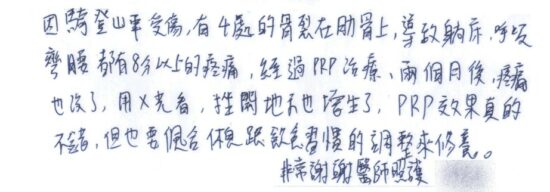 因騎登山車受傷,有4處的骨裂在肋骨上,導致躺床、呼吸
彎腰都有8分以上的疼痛,經過PRP治療、兩個月後,疼痛
也沒了,用X光看,推開地方也增生了,PRP效果真的
不錯,但也要配合休息跟飲食習慣的調整來修養。
非常謝謝醫師照護